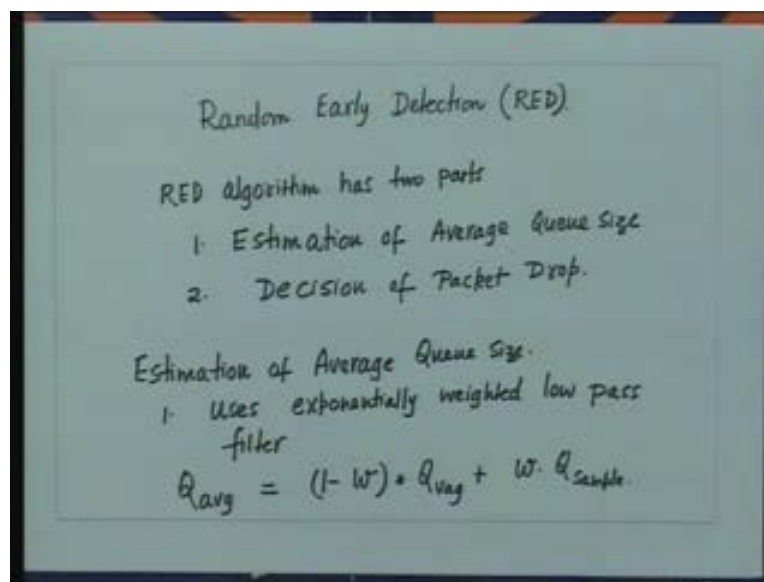 Random Early Detection (RED)
RED algorithm has two parts
1. Estimation of Average Queue Size
2. Decision of Packet Drop.
Estimation of Average Queue Size.
1. Uses exponentially weighted low pass
filter
Qavg = (1- W) * Qvag + W. Qsample.